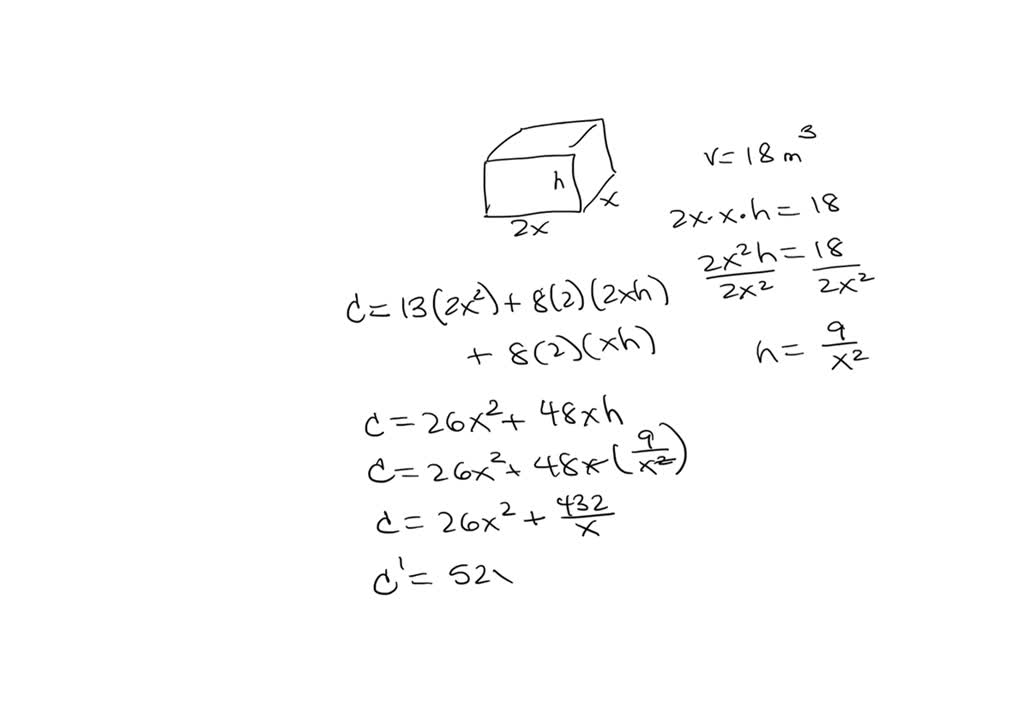 h
x
2x
V = 18 m³
2x·x·h = 18
2x²h = 18
2x² 2x²
h = 9/x²
C = 13(2x²) + 8(2)(2xh)
+ 8(2)(xh)
C = 26x² + 48xh
C = 26x² + 48x(9/x²)
C = 26x² + 432/x
C' = 52